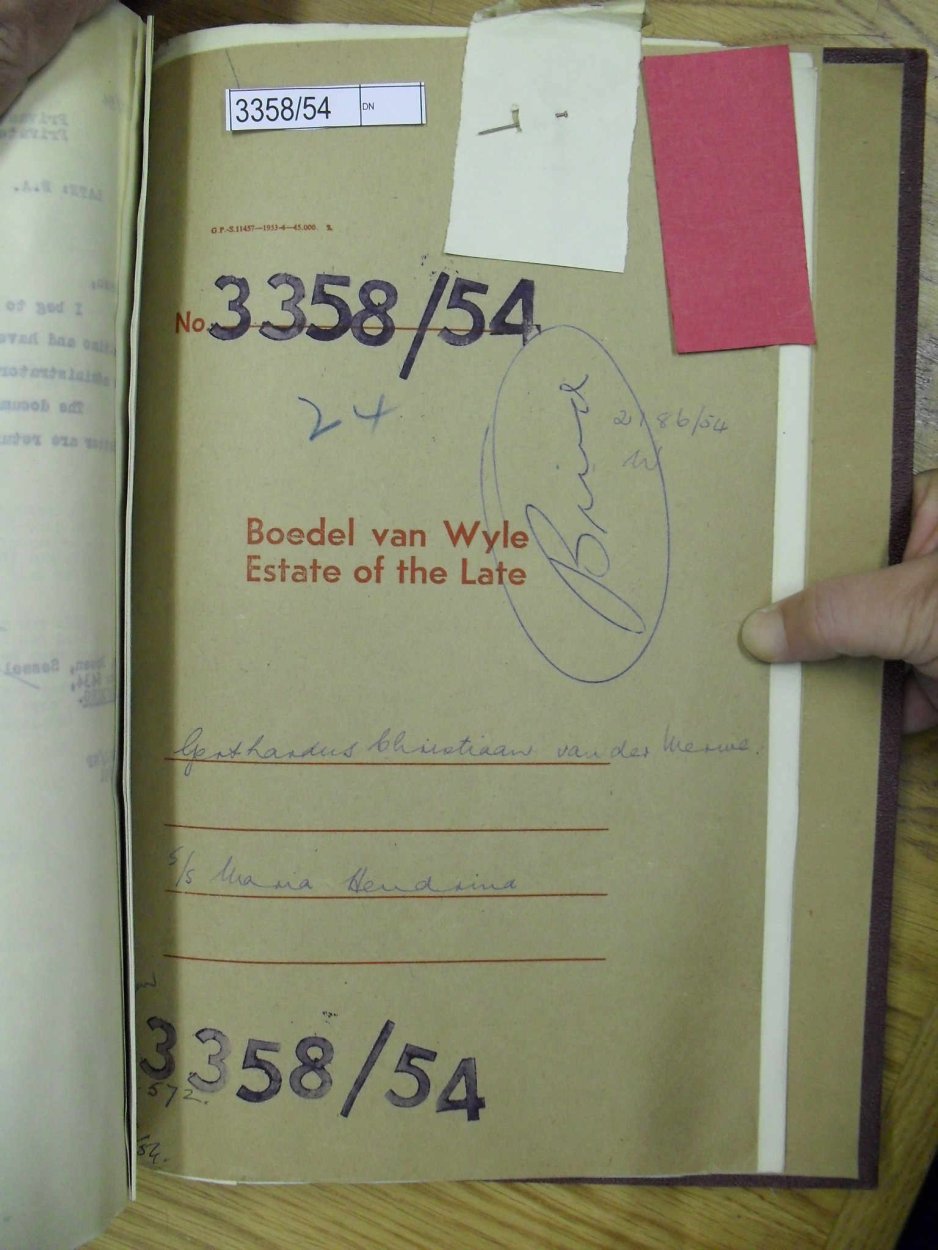 3358/54 DN
G.P.-S.11457—1953-4—45.000. 2.
No. 3358/54
24
2186/54
Boedel van Wyle
Estate of the Late
Gerthardus Christiaan van der Merwe.
s/s Maria Hendrina
3358/54
572.